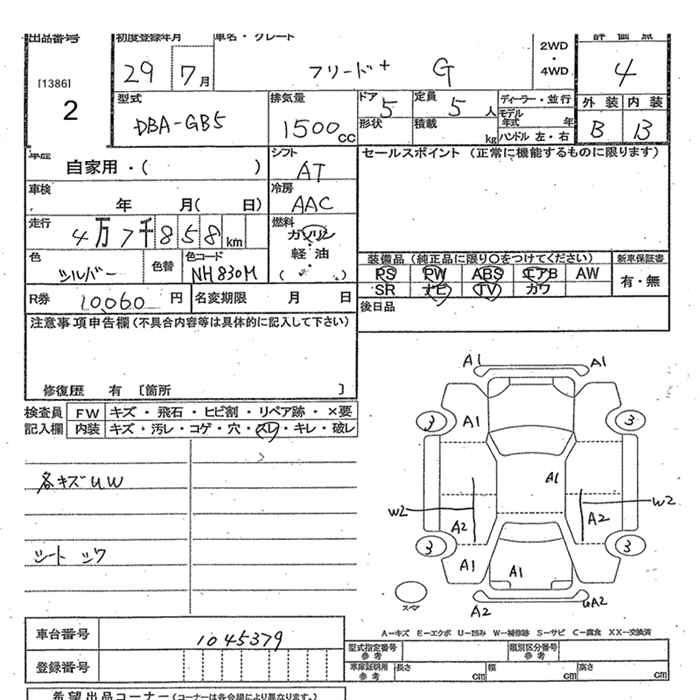 出品番号 初度登録年月 車名・グレード 評価点
[1386] 29 7月 フリード+ G 2WD・4WD 4
2
型式 排気量 ドア 5 定員 5人 ディーラー・並行 外装 内装
DBA-GB5 1500cc 形状 積載 kg モデル年式 年 B B
ハンドル 左・右
自家用・( ) シフト AT セールスポイント (正常に機能するものに限ります)
車検 年 月( 日) 冷房 AAC
走行 4万7千858km 燃料 ガソリン 軽・油 ( )
色 シルバー 色替 色コード NH830M
装備品 (純正品に限り○をつけてください) 新車保証書
PS PW ABS エアB AW 有・無
SR ナビ TV カワ
R券 10,060円 名変期限 月 日 後日品
注意事項申告欄 (不具合内容等は具体的に記入して下さい)
修復歴 有 [箇所 ]
検査員 FW キズ・飛石・ヒビ割・リペア跡・×要
記入欄 内装 キズ・汚レ・コゲ・穴・スレ・キレ・破レ
各キズUW
シート シワ
A1 A1
3 A1 3
A1
W2 W2
A2 A2
3 3
A1 A1
スペア A2 UA2
A-キズ E-エクボ U-凹み W-補修跡 S-サビ C-腐食 XX-交換済
車台番号 1045379
登録番号
型式指定番号 参考 類別区分番号 参考
車庫証明用 参考 長さ cm 幅 cm 高さ cm
希望出品コーナー (コーナーは各会場により異なります。)